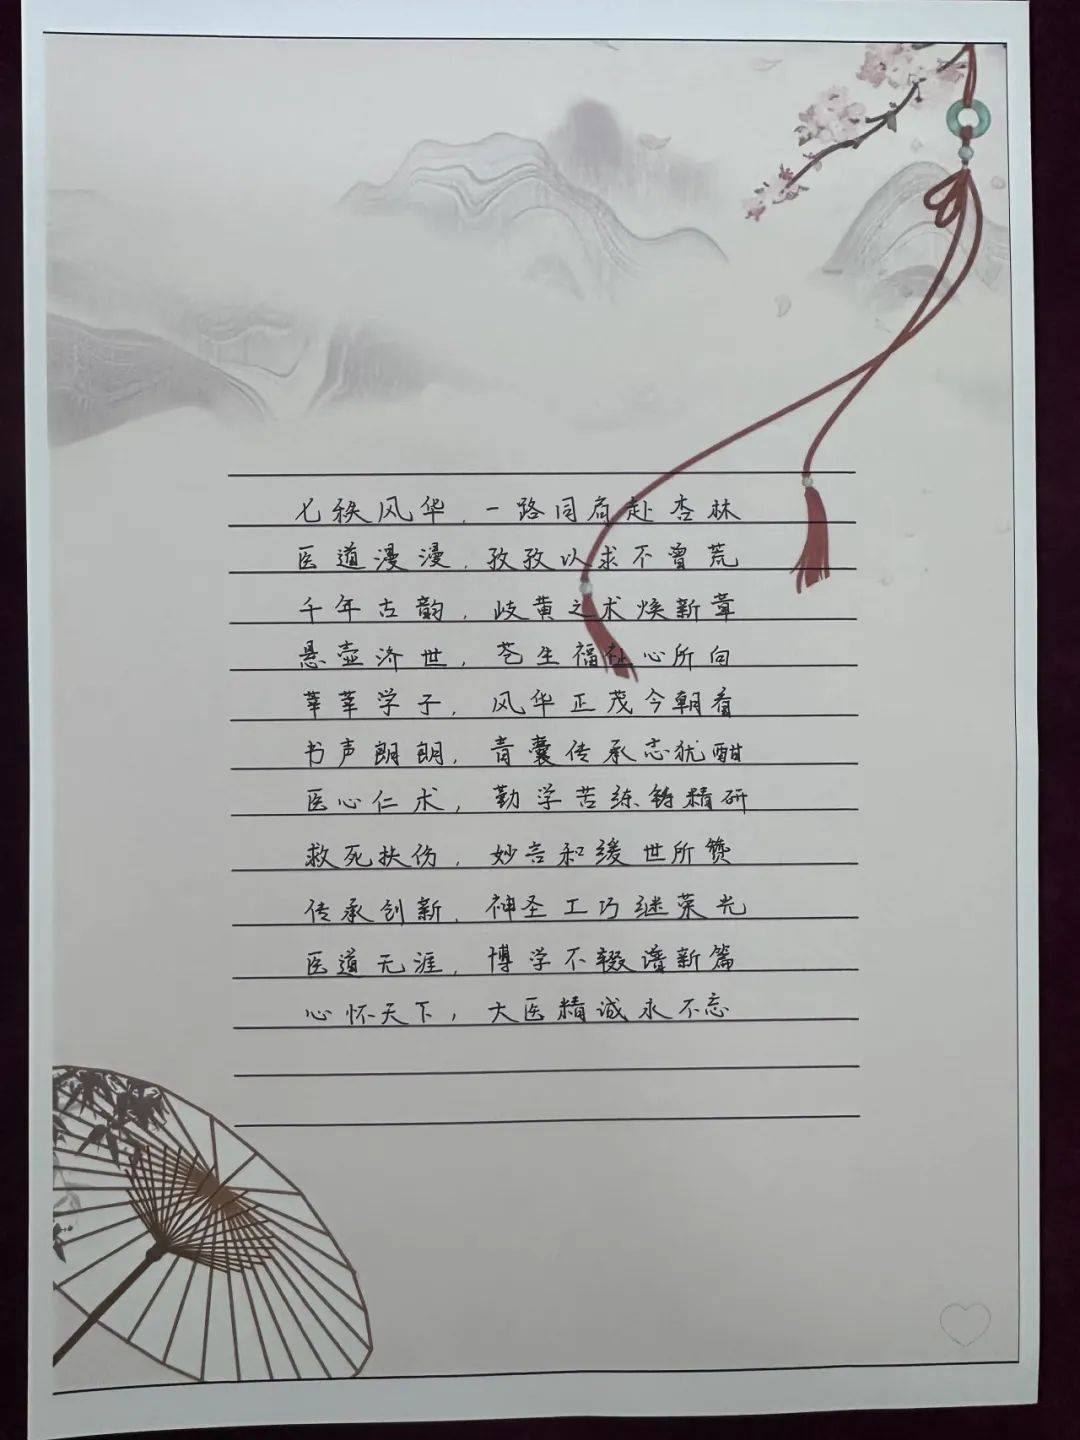 七秩风华，一路同肩赴杏林
医道漫漫，孜孜以求不曾荒
千年古韵，岐黄之术焕新章
悬壶济世，苍生福祉心所向
莘莘学子，风华正茂今朝看
书声朗朗，青囊传承志犹酣
医心仁术，勤学苦练铸精研
救死扶伤，妙音和缓世所赞
传承创新，神圣工巧继荣光
医道无涯，博学不辍谱新篇
心怀天下，大医精诚永不忘